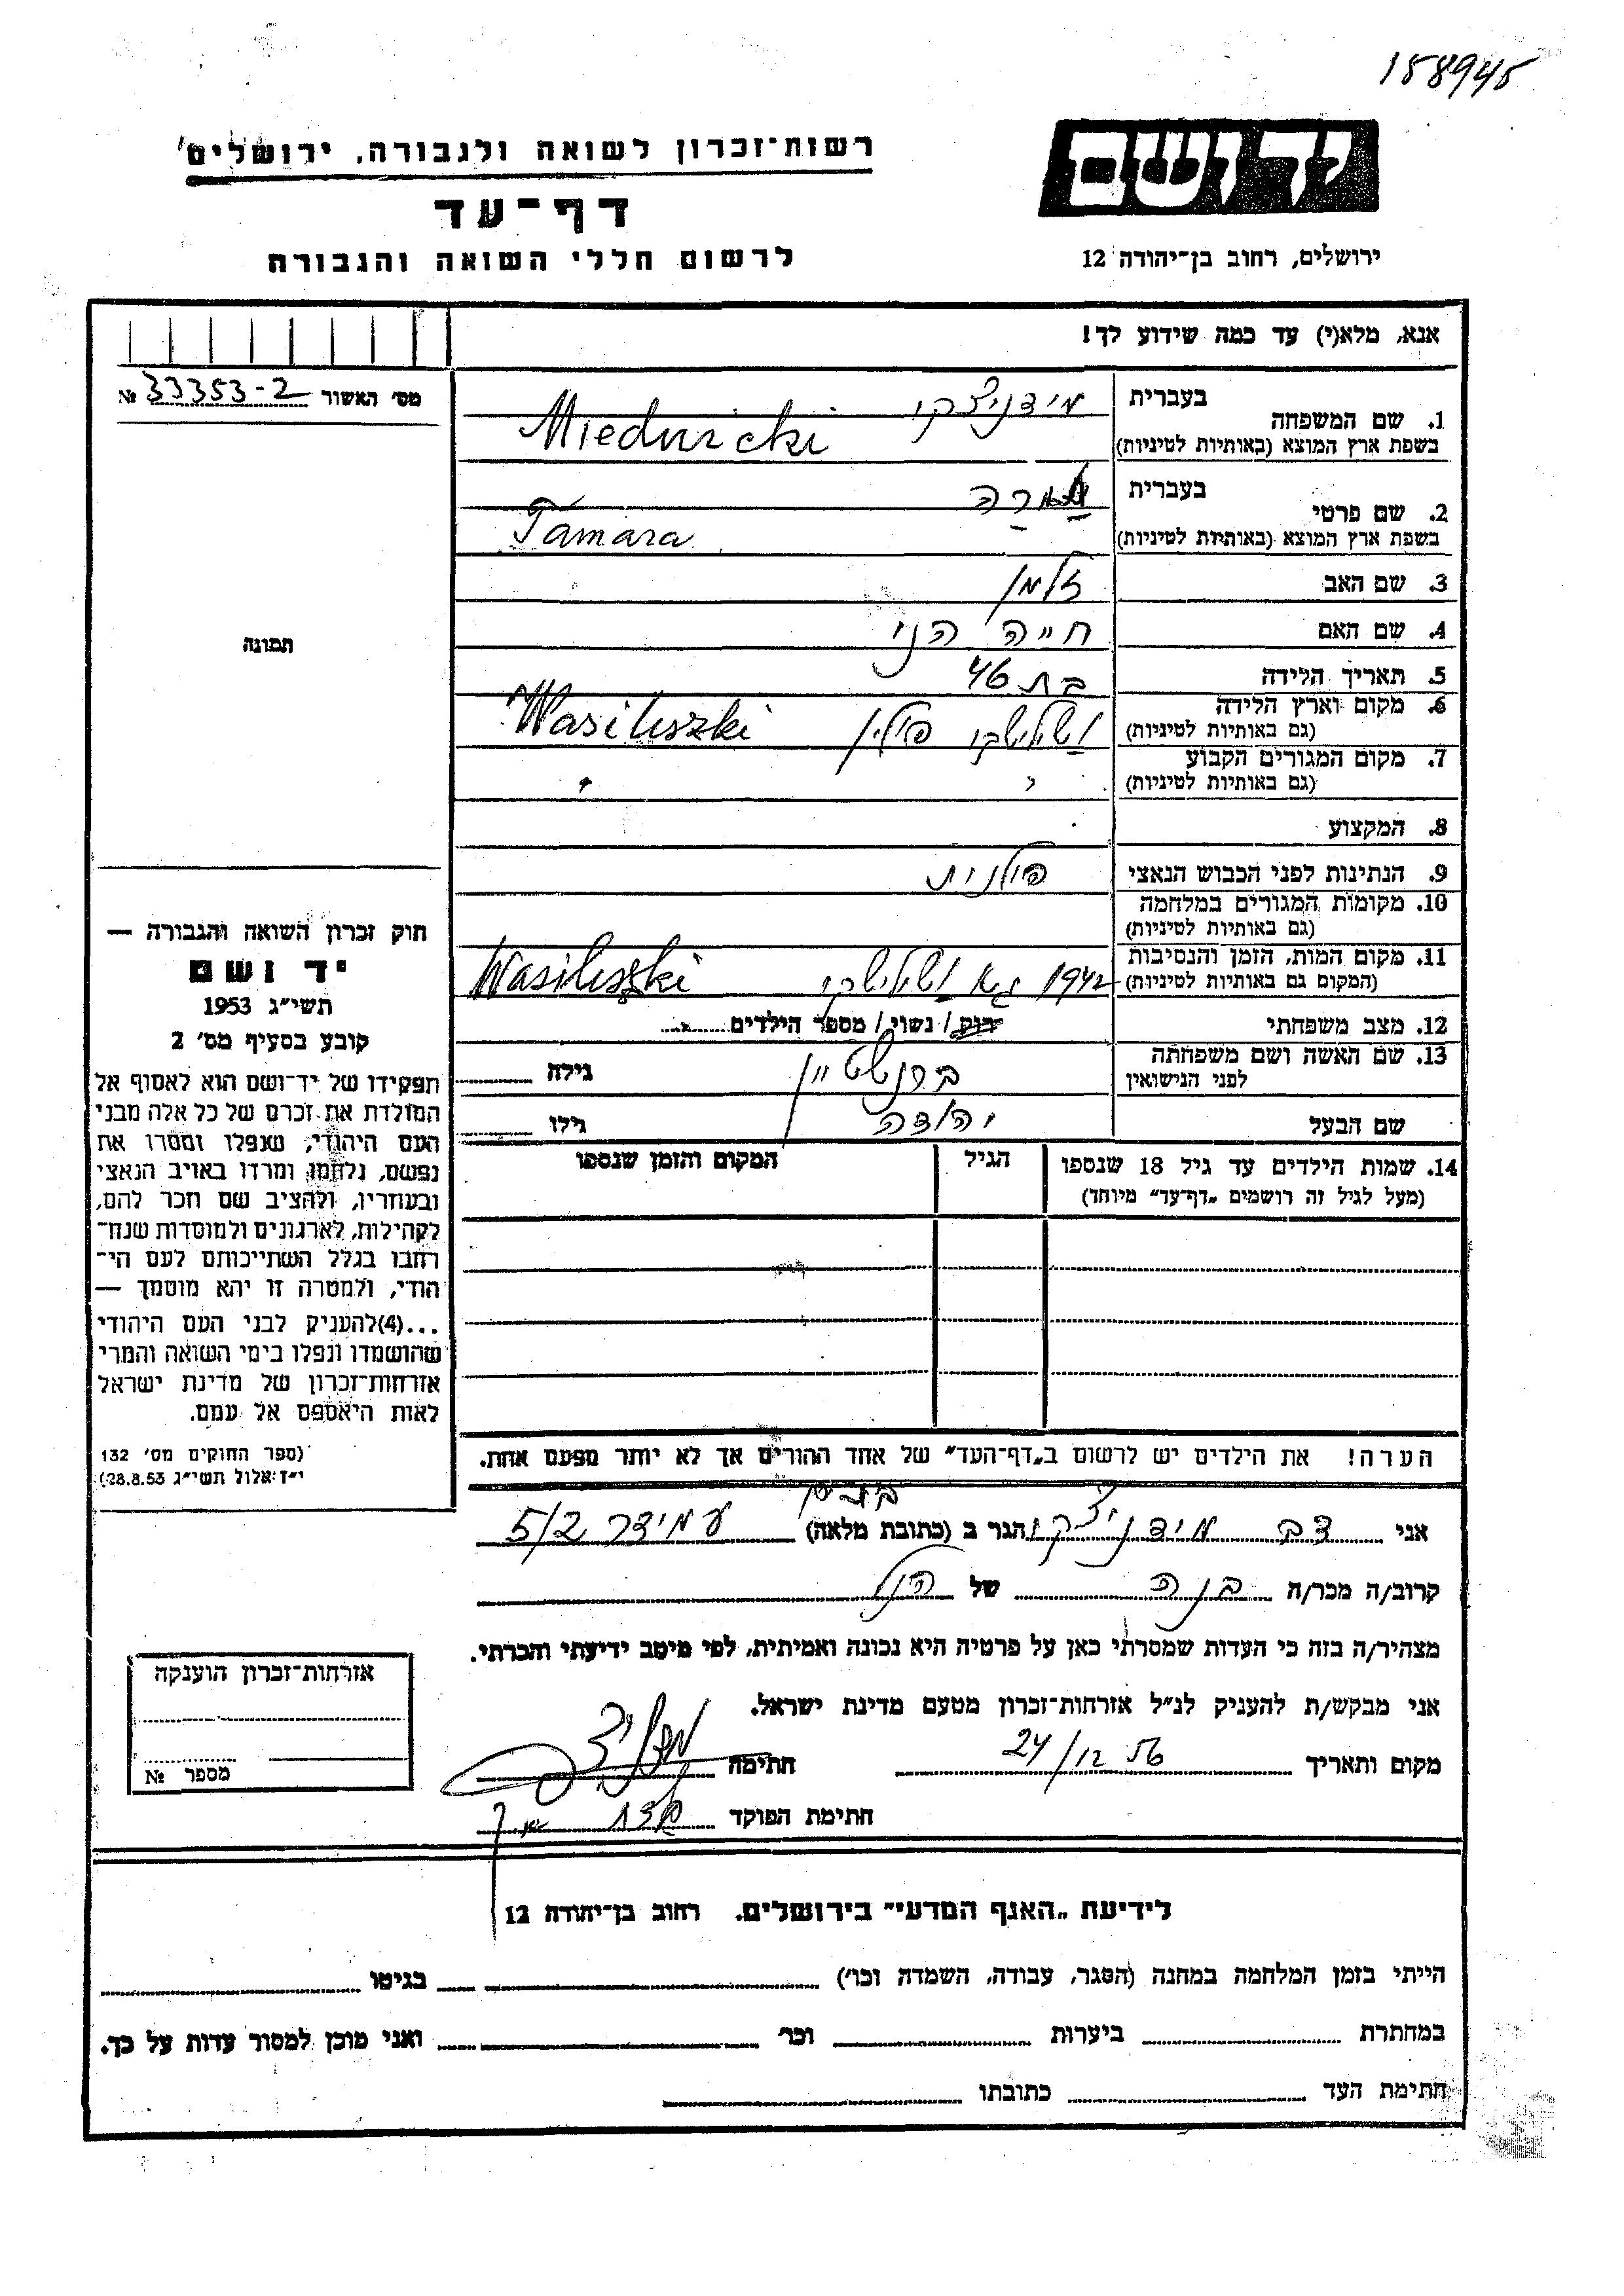 158945
יד ושם
ירושלים, רחוב בן־יהודה 12
רשות־זכרון לשואה ולגבורה, ירושלים
דף־עד
לרשום חללי השואה והגבורה
אנא, מלא(י) עד כמה שידוע לך!
מס׳ האשור 33353-2 №
תמונה
בעברית מידניצקי
1. שם המשפחה
בשפת ארץ המוצא (באותיות לטיניות) Miednicki
בעברית
2. שם פרטי
בשפת ארץ המוצא (באותיות לטיניות) Tamara
3. שם האב זלמן
4. שם האם חייה הני
5. תאריך הלידה בת 46
6. מקום וארץ הלידה
(גם באותיות לטיניות) ושילישקי פולין Wasiliszki
7. מקום המגורים הקבוע
(גם באותיות לטיניות) " "
8. המקצוע
9. הנתינות לפני הכבוש הנאצי פולנית
10. מקומות המגורים במלחמה
(גם באותיות לטיניות)
11. מקום המות, הזמן והנסיבות
(המקום גם באותיות לטיניות) 1942 ושילישקי Wasiliszki
12. מצב משפחתי רוק / נשוי / מספר הילדים
13. שם האשה ושם משפחתה
לפני הנישואין ברנשטיין גילה
שם הבעל יהודה גילו
14. שמות הילדים עד גיל 18 שנספו הגיל המקום והזמן שנספו
(מעל לגיל זה רושמים „דף־עד” מיוחד)
הערה! את הילדים יש לרשום ב„דף־העד” של אחד ההורים אך לא יותר מפעם אחת.
חוק זכרון השואה והגבורה —
יד ושם
תשי״ג 1953
קובע בסעיף מס׳ 2
תפקידו של יד־ושם הוא לאסוף אל
המולדת את זכרם של כל אלה מבני
העם היהודי, שנפלו ומסרו את
נפשם, נלחמו ומרדו באויב הנאצי
ובעוזריו, ולהציב שם וזכר להם,
לקהילות, לארגונים ולמוסדות שנח־
רבו בגלל השתייכותם לעם הי־
הודי, ולמטרה זו יהא מוסמך —
...(4) להעניק לבני העם היהודי
שהושמדו ונפלו בימי השואה והמרי
אזרחות־זכרון של מדינת ישראל
לאות היאספם אל עמם.
(ספר החוקים מס׳ 132
י״ז אלול תשי״ג 28.8.53)
אני דב מידניצקי הגר ב (כתובת מלאה) עמידר 5/2
קרוב/ה מכר/ה בנה של הנ״ל
מצהיר/ה בזה כי העדות שמסרתי כאן על פרטיה היא נכונה ואמיתית, לפי מיטב ידיעתי והכרתי.
אני מבקש/ת להעניק לנ״ל אזרחות־זכרון מטעם מדינת ישראל.
מקום ותאריך 24/12 חתימה
חתימת הפוקד
אזרחות־זכרון הוענקה
מספר №
לידיעת „האגף המדעי” בירושלים. רחוב בן־יהודה 12
הייתי בזמן המלחמה במחנה (הסגר, עבודה, השמדה וכו׳) בגיטו
במחתרת ביערות וכו׳ ואני מוכן למסור עדות על כך.
חתימת העד כתובתו